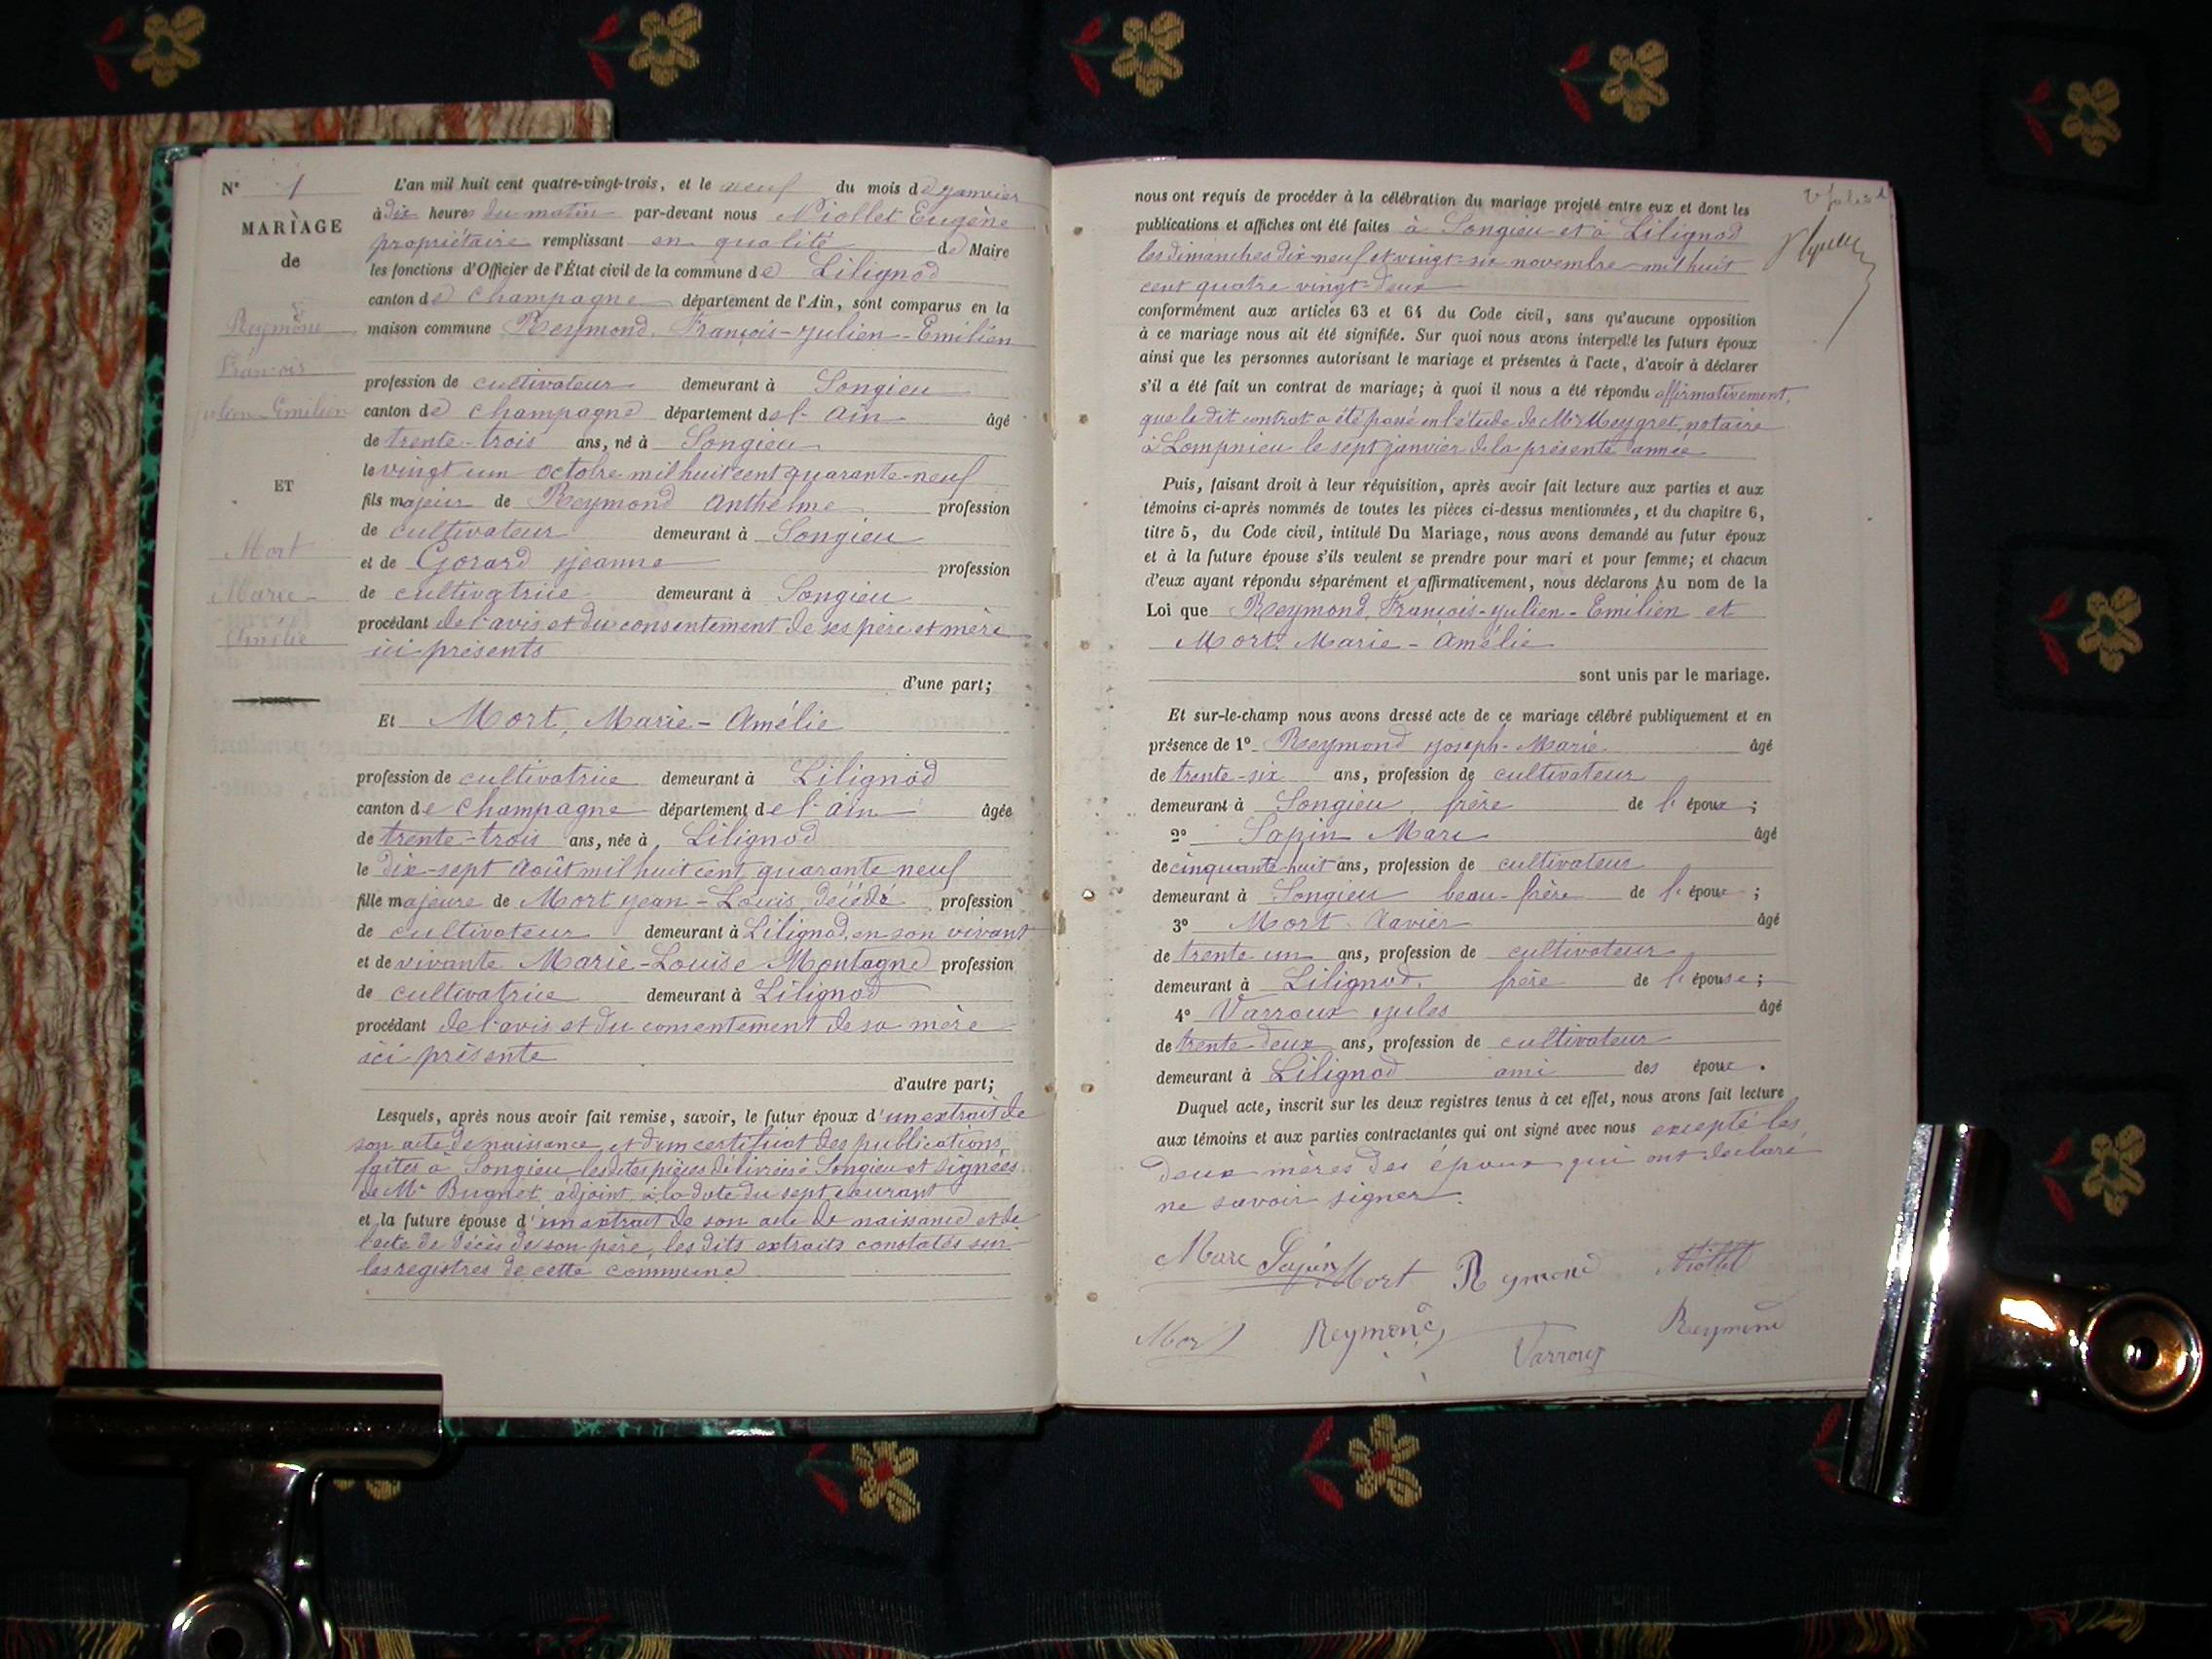 N° 1
MARIAGE
de
Reymond
François
Julien-Emilien
ET
Mort
Marie-
Amélie
L'an mil huit cent quatre-vingt-trois, et le neuf du mois de janvier
à dix heures du matin par-devant nous Niollet Eugène
propriétaire remplissant en qualité de Maire
les fonctions d'Officier de l'État civil de la commune de Lilignod
canton de Champagne département de l'Ain, sont comparus en la
maison commune Reymond, François-Julien-Emilien
profession de cultivateur demeurant à Songieu
canton de Champagne département de l'Ain âgé
de trente-trois ans, né à Songieu
le vingt un octobre mil huit cent quarante-neuf
fils majeur de Reymond Anthelme profession
de cultivateur demeurant à Songieu
et de Gorard Jeanne profession
de cultivatrice demeurant à Songieu
procédant de l'avis et du consentement de ses père et mère
ici présents
d'une part;
Et Mort, Marie-Amélie
profession de cultivatrice demeurant à Lilignod
canton de Champagne département de l'Ain âgée
de trente-trois ans, née à Lilignod
le dix-sept Août mil huit cent quarante neuf
fille majeure de Mort Jean-Louis, décédé profession
de cultivateur demeurant à Lilignod, en son vivant
et de vivante Marie-Louise Montagne profession
de cultivatrice demeurant à Lilignod
procédant de l'avis et du consentement de sa mère
ici présente
d'autre part;
Lesquels, après nous avoir fait remise, savoir, le futur époux d'un extrait de
son acte de naissance et d'un certificat des publications
faites à Songieu, les dites pièces délivrées à Songieu et signées
de Mr Bugnet, adjoint, à la date du sept courant
et la future épouse d'un extrait de son acte de naissance et de
l'acte de décès de son père, les dits extraits constatés sur
les registres de cette commune
nous ont requis de procéder à la célébration du mariage projeté entre eux et dont les
publications et affiches ont été faites à Songieu et à Lilignod
les dimanches dix-neuf et vingt-six novembre mil huit
cent quatre vingt-deux
conformément aux articles 63 et 64 du Code civil, sans qu'aucune opposition
à ce mariage nous ait été signifiée. Sur quoi nous avons interpellé les futurs époux
ainsi que les personnes autorisant le mariage et présentes à l'acte, d'avoir à déclarer
s'il a été fait un contrat de mariage; à quoi il nous a été répondu affirmativement,
que le dit contrat a été passé en l'étude de Mr Meygret, notaire
à Lompnieu le sept janvier de la présente année
Puis, faisant droit à leur réquisition, après avoir fait lecture aux parties et aux
témoins ci-après nommés de toutes les pièces ci-dessus mentionnées, et du chapitre 6,
titre 5, du Code civil, intitulé Du Mariage, nous avons demandé au futur époux
et à la future épouse s'ils veulent se prendre pour mari et pour femme; et chacun
d'eux ayant répondu séparément et affirmativement, nous déclarons Au nom de la
Loi que Reymond, François-Julien-Emilien et
Mort. Marie-Amélie
sont unis par le mariage.
Et sur-le-champ nous avons dressé acte de ce mariage célébré publiquement et en
présence de 1° Reymond Joseph-Marie âgé
de trente-six ans, profession de cultivateur
demeurant à Songieu, frère de l'époux;
2° Sapin Marc âgé
de cinquante-huit ans, profession de cultivateur
demeurant à Songieu beau-frère de l'époux;
3° Mort Xavier âgé
de trente un ans, profession de cultivateur
demeurant à Lilignod, frère de l'épouse;
4° Varroux Jules âgé
de trente-deux ans, profession de cultivateur
demeurant à Lilignod ami des époux.
Duquel acte, inscrit sur les deux registres tenus à cet effet, nous avons fait lecture
aux témoins et aux parties contractantes qui ont signé avec nous excepté les
deux mères des époux qui ont déclaré
ne savoir signer.
Marc Sapin Mort Reymond Niollet
Mort Reymond Varroux Reymond